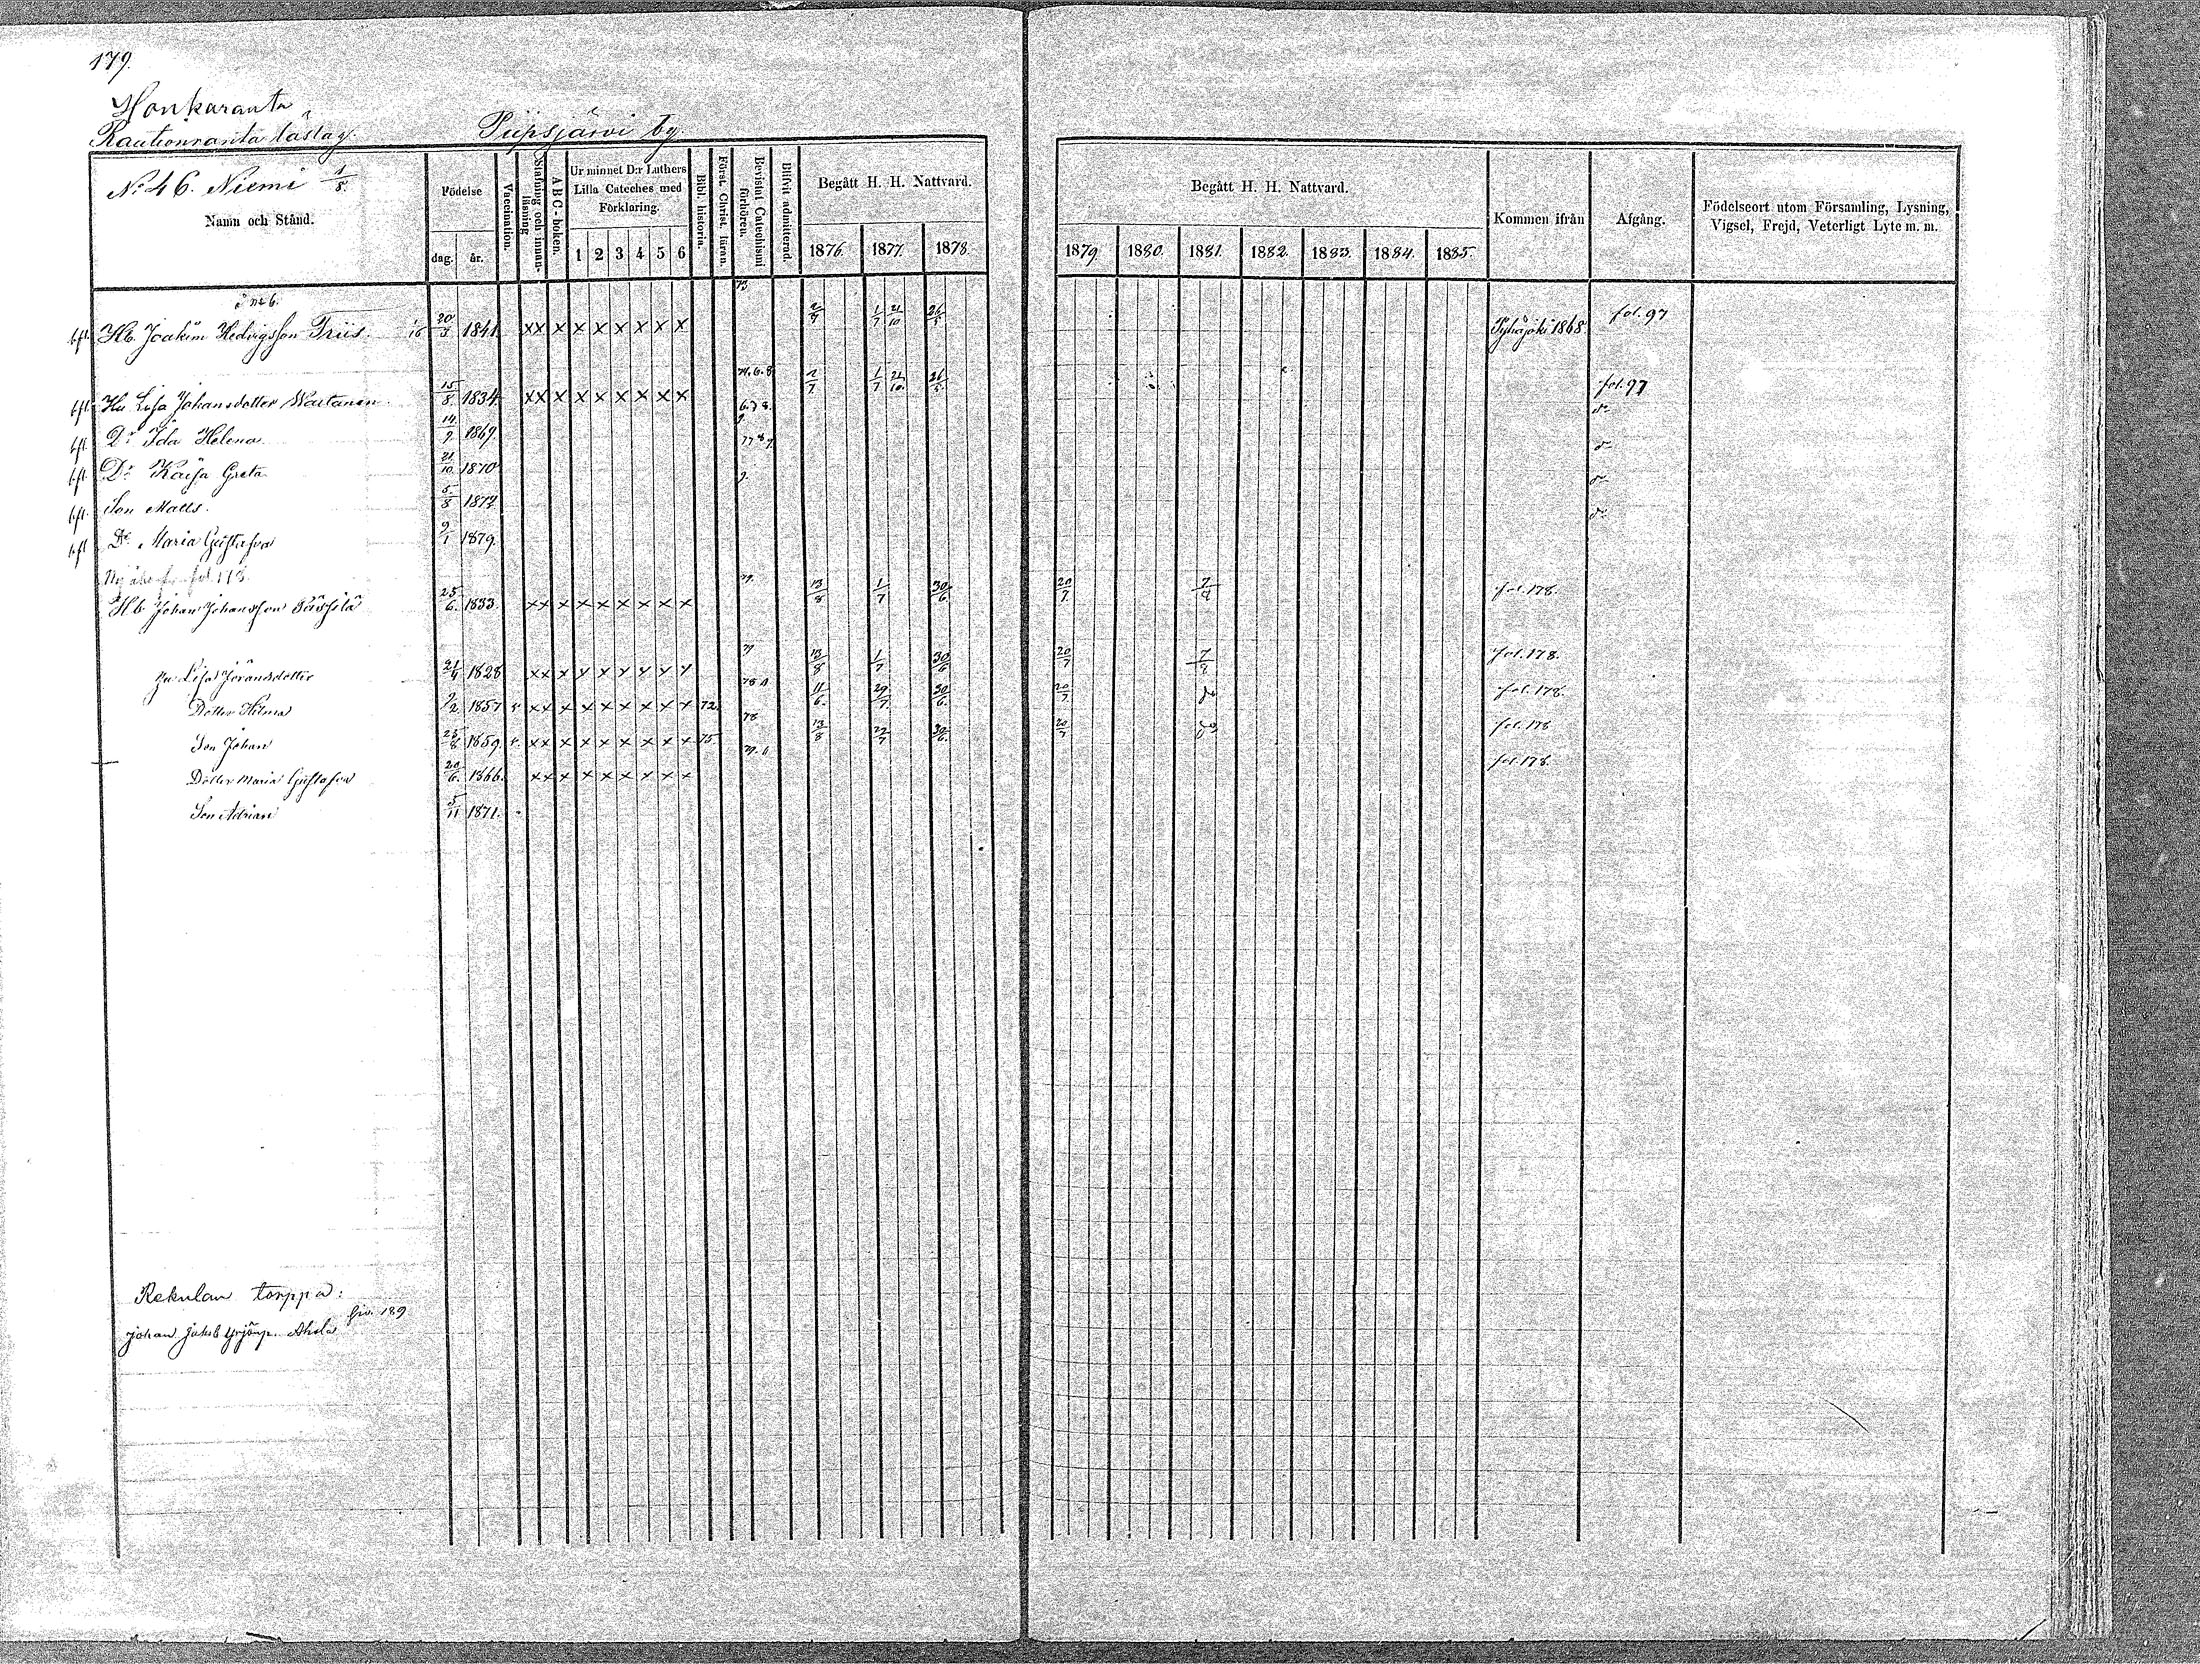 179.
Honkaranta
Rautionranta läslag.
Piipsjärvi by.
No 46. Niemi 1/8.
Namn och Stånd.
Födelse
dag. år.
Vaccination.
Stafning och innan-läsning
A B C-boken.
Ur minnet D:r Luthers Lilla Cateches med Förklaring.
1 2 3 4 5 6
Bibl. historia.
Först. Christ. läran.
Bevistat Catechismi förhören.
Blifvit admitterad.
Begått H. H. Nattvard.
1876. 1877. 1878.
Begått H. H. Nattvard.
1879. 1880. 1881. 1882. 1883. 1884. 1885.
Kommen ifrån
Afgång.
Födelseort utom Församling, Lysning, Vigsel, Frejd, Veterligt Lyte m. m.
Hb. Joakim Hedvigsson Friis. 1841. x x x x x x x x x Pyhäjoki 1868. fol. 97
Hu Lisa Johansdotter Wartanen. 15/8 1834. x x x x x x x x x fol. 97
Dr Ida Helena 14/9 1869.
Dr Kaisa Greta 21/10 1870
Son Matts. 5/8 1872
Dr Maria Gustafva 9/1 1879.
fol 178.
Hb Johan Johansson 25/6. 1833. x x x x x x x x x 13/8 1/7 30/6. 20/7. fol. 178.
Hu Lisa Göransdotter 21/4 1828 x x x x x x x x x 13/8 1/7 30/6 20/7 fol. 178.
Dotter Hilma 9/2 1857 v x x x x x x x x x 72. 11/6. 29/7 30/6. 20/7. fol. 178.
Son Johan 1859. v. x x x x x x x x x 75. 13/8 22/7 20/7 fol. 178
Dotter Maria Gustafva 20/6. 1866. x x x x x x x x x fol. 178.
Son Adrian 5/11 1871.
Rekulan torppa:
Siv. 189
Johan Jakob Yrjönp. Ahola